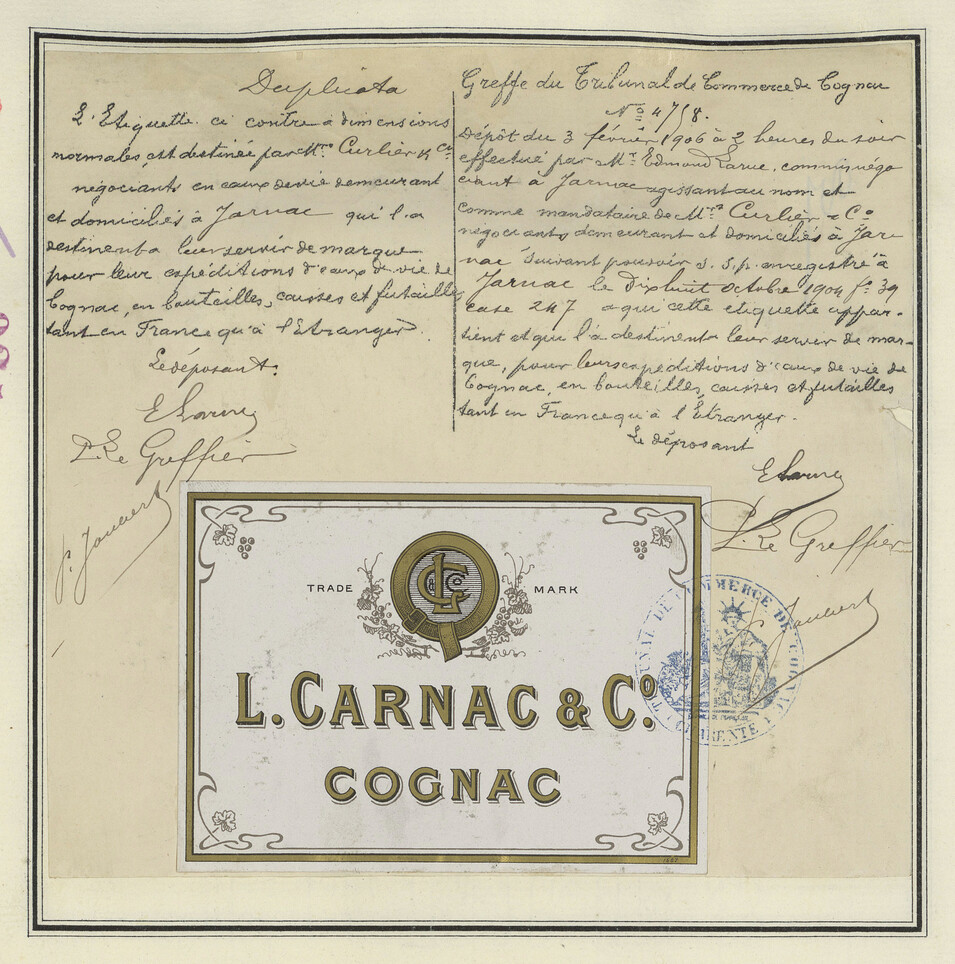 Duplicata
L'Etiquette ci contre à dimensions
normales est destinée par Mrs Curlier & Cie
négociants en eaux de vie demeurant
et domiciliés à Jarnac qui l'a
destinent à leur servir de marque
pour leur expéditions d'eaux de vie de
Cognac, en bouteilles, caisses et futailles
tant en France qu'à l'Etranger.
Le déposant.
E Larue
P. Le Greffier
Greffe du Tribunal de Commerce de Cognac
No 4758.
Dépôt du 3 février 1906 à 2 heures du soir
effectué par Mr Edmond Larue, commis négo
ciant à Jarnac agissant au nom et
comme mandataire de Mrs Curlier & Co
négociants demeurant et domiciliés à Jar
nac suivant pouvoir s. s. p. enregistré à
Jarnac le Dixhuit Octobre 1904 fo 39
case 247 a qui cette etiquette appar-
tient et qui l'à destinent à leur servir de mar-
que, pour leurs expéditions d'eaux de vie de
Cognac, en bouteilles, caisses et futailles
tant en France qu'à l'Etranger.
Le déposant
E Larue
P. Le Greffier
TRADE MARK
L. CARNAC & Co.
COGNAC
TRIBUNAL DE COMMERCE DE COGNAC
CHARENTE